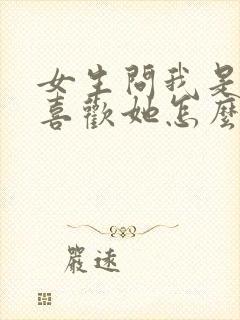 女生問我是
喜歡她怎麼
嚴遠